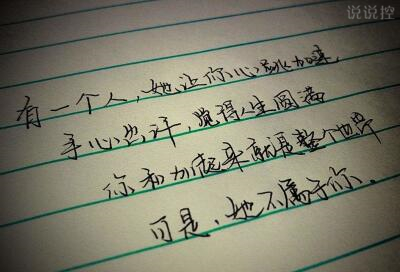 说说控
有一个人,她让你心跳加速,
手心出汗,觉得人生圆满
你和她加起来就是整个世界
可是,她不属于你.